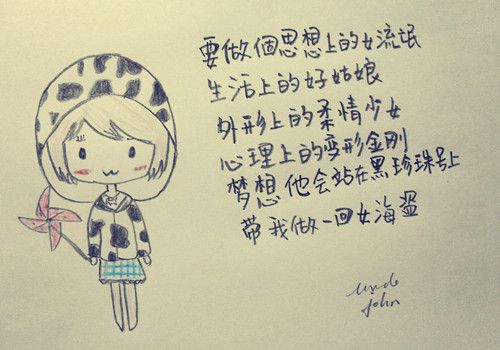 要做個思想上的女流氓
生活上的好姑娘
外形上的柔情少女
心理上的变形金刚
梦想他会站在黑珍珠号上
带我做一回女海盗
uncle
john